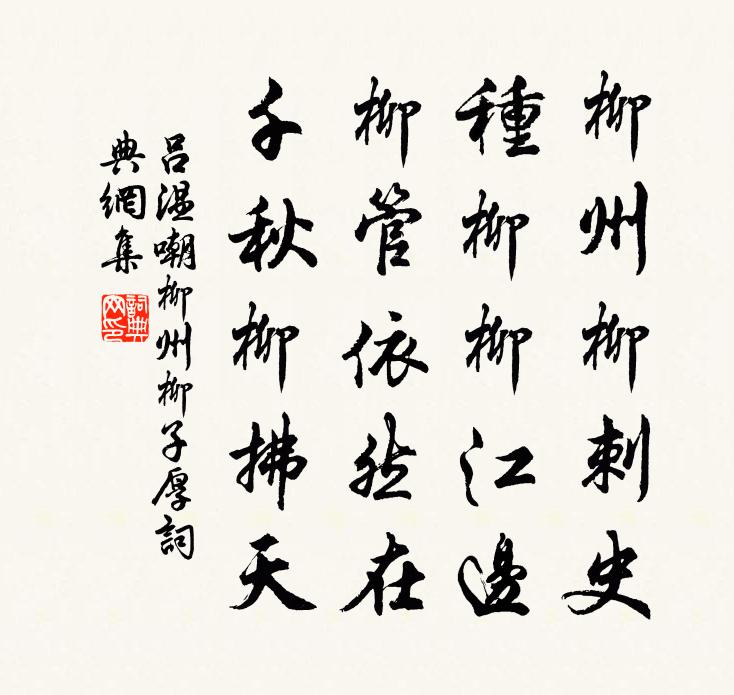 柳州柳刺史
種柳柳江邊
柳管依然在
千秋柳拂天
呂溫嘲柳州柳子厚詞
典網集
詞典網印